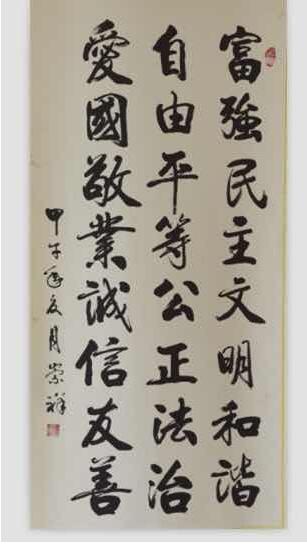 富強民主文明和諧
自由平等公正法治
愛國敬業誠信友善
甲午年夏月崇祥